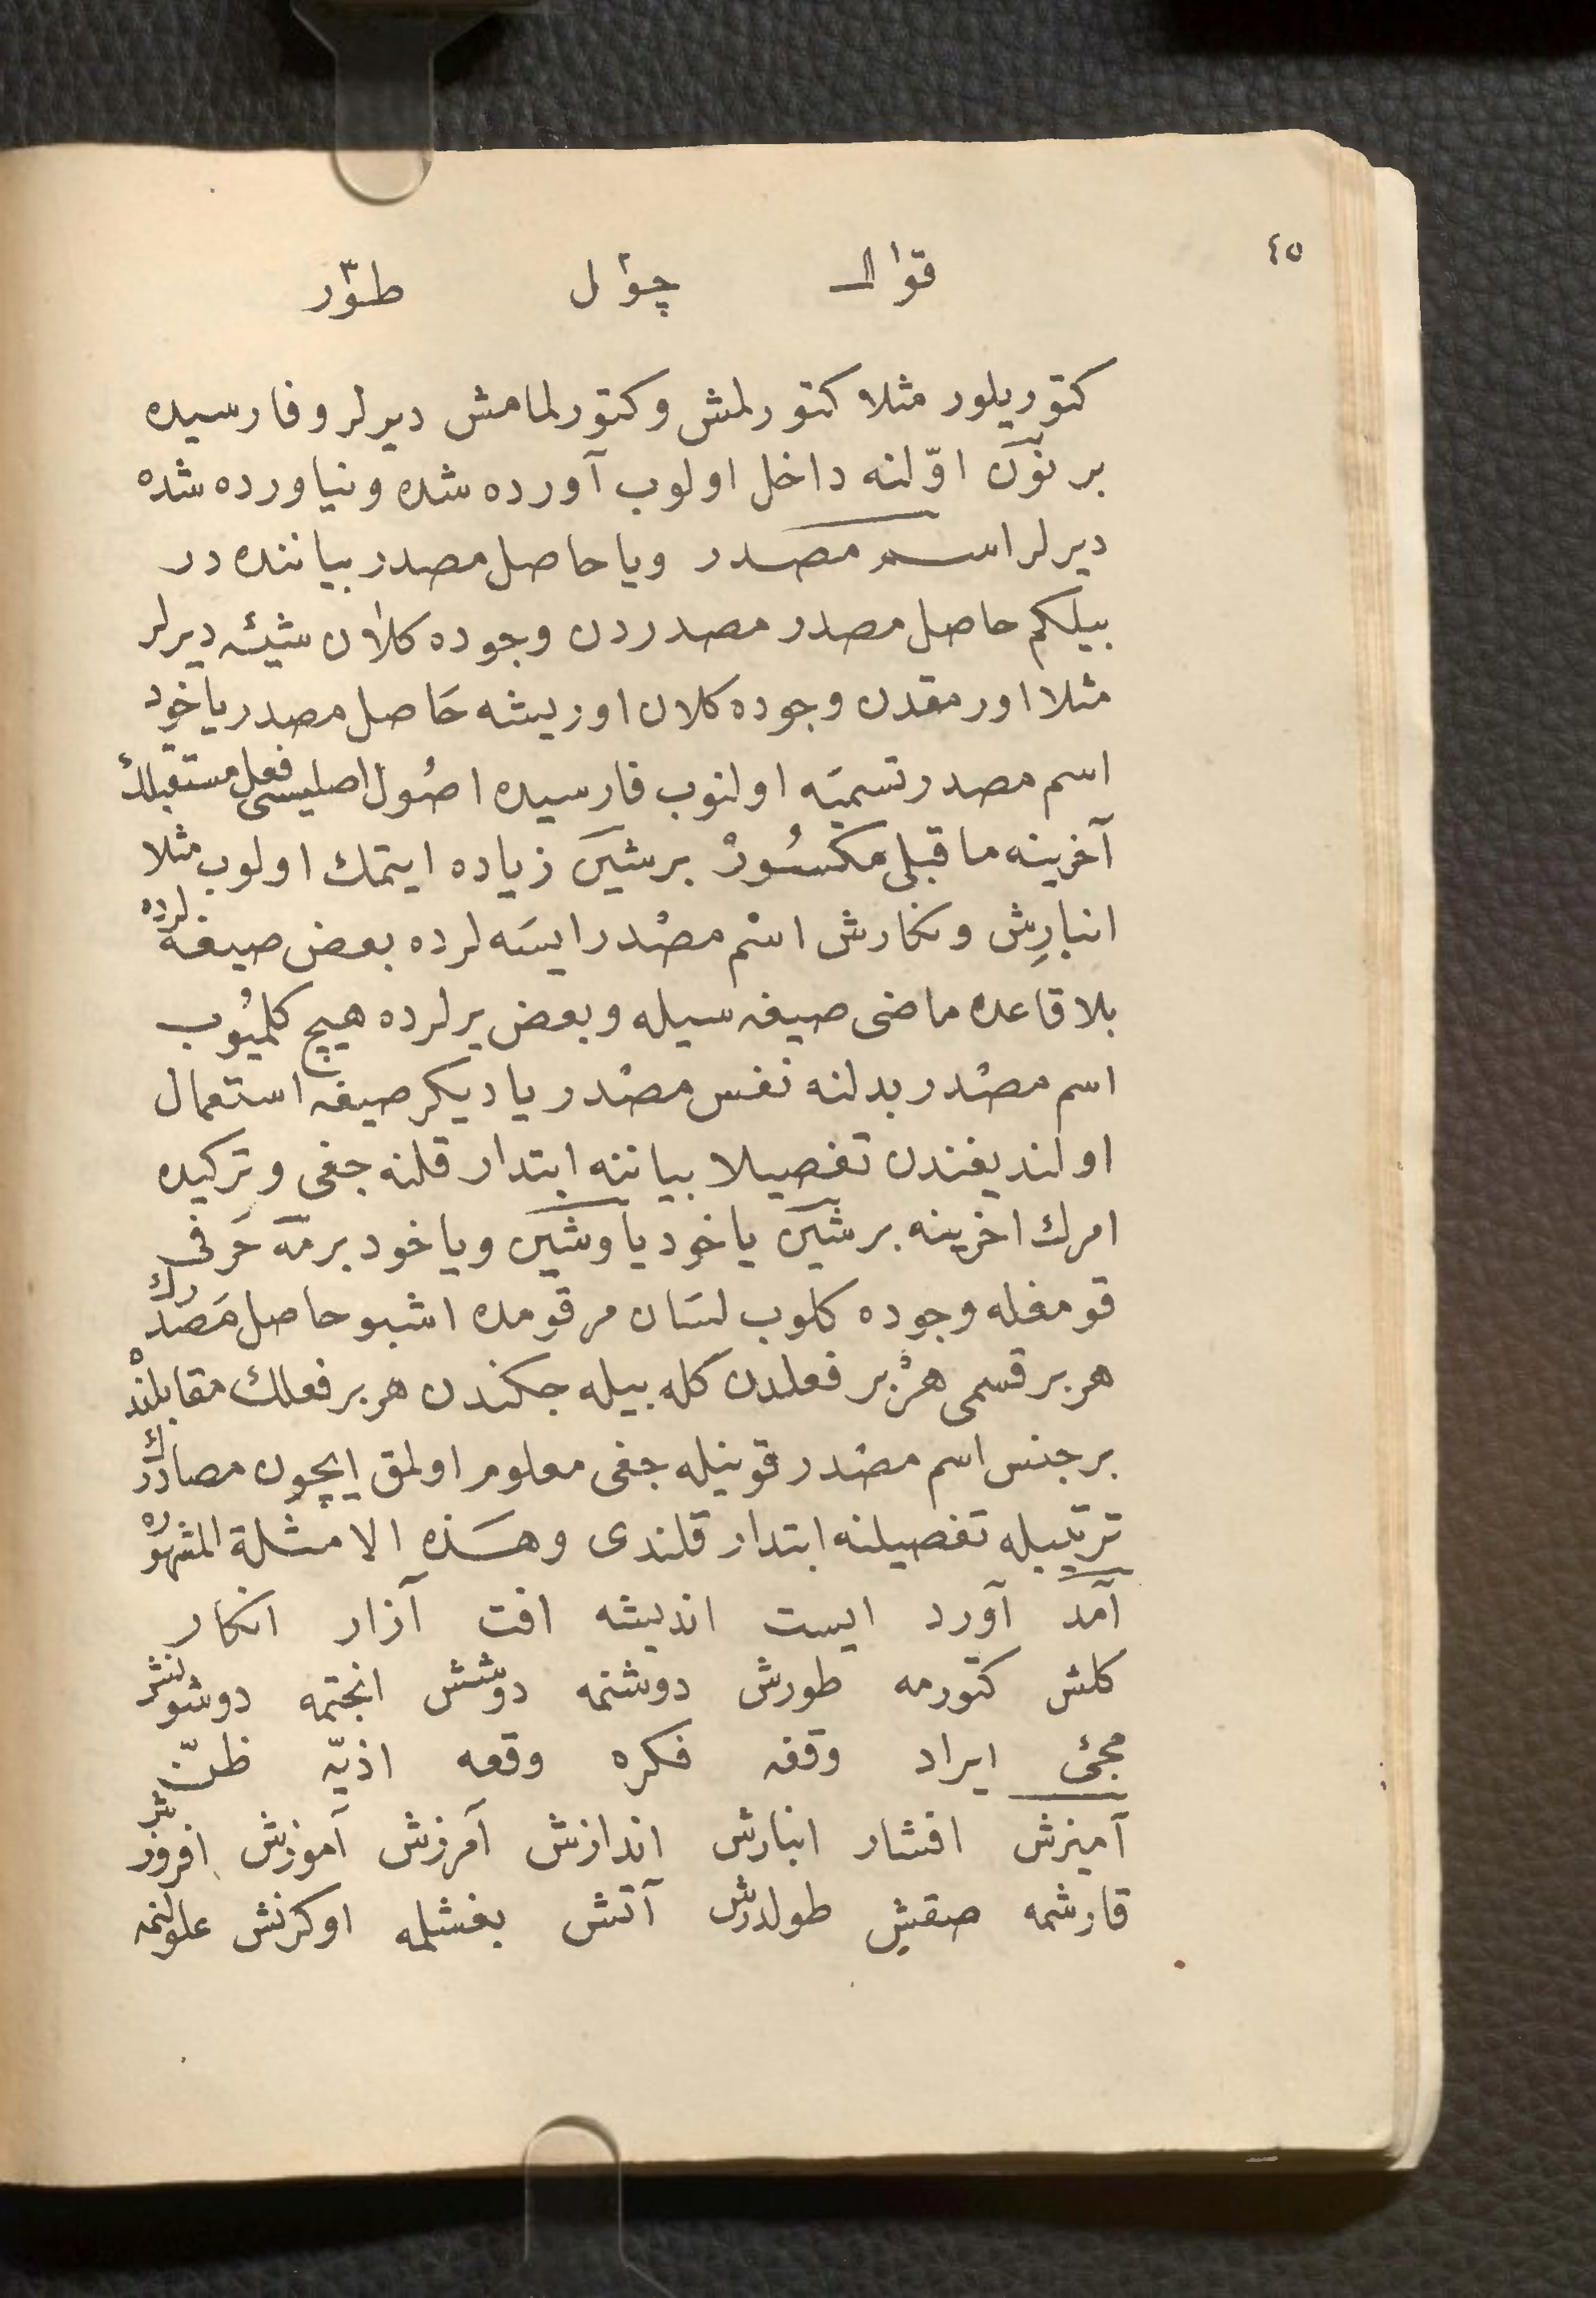 ٤٥
قوال چول طور
كتوريلور مثلا كتورلمش وكتورلمامش ديرلر وفارسيده
بر نون اوّلنه داخل اولوب آورده شده ونياورده شده
ديرلر اسم مصدر ويا حاصل مصدر بياننده در
بيلكم حاصل مصدر مصدردن وجوده كلان شيئه ديرلر
مثلا اورمقدن وجوده كلان اوريشه حَاصل مصدر ياخود
اسم مصدر تسميَه اولنوب فارسيده اصُول اصليسى فعل مستقبلك
آخرينه ماقبلى مكسُور بر شين زياده ايتمك اولوب مثلا
انبارِش ونكارش اسْم مصْدر ايسَه لرده بعض صيغه لرده
بلا قاعده ماضى صيغه سيله وبعض يرلرده هيچ كلميُوب
اسم مصْدر بدلنه نفس مصْدر يا ديكر صيغه استعمال
اولنديغندن تفصيلا بياننه ابتدار قلنه جغى وتركيده
امرك اخرينه بر شين ياخود يا وشين وياخود بر مه حَرفى
قومغله وجوده كلوب لسَان مرقومده اشبو حاصل مَصْدرك
هر بر قسمى هرْبر فعلدن كله بيله جكندن هر بر فعلك مقابلنْده
بر جنس اسم مصْدر قونيله جغى معلوم اولمق ايچون مصادرك
ترتيبيله تفصيلنه ابتدار قلندى وهَذه الامثلة المشهوره
آمد آورد ايست انديشه افت آزار انكار
كلش كتورمه طورش دوشنمه دوشش انجتمه دوشولنش
مجئ ايراد وقفه فكره وقعه اذيّه ظنّ
آميزش افشار انبارش اندازش آمرزش آموزش افروزش
قارشمه صقيش طولدرش آتش بغشلمه اوكرنش علولنمه